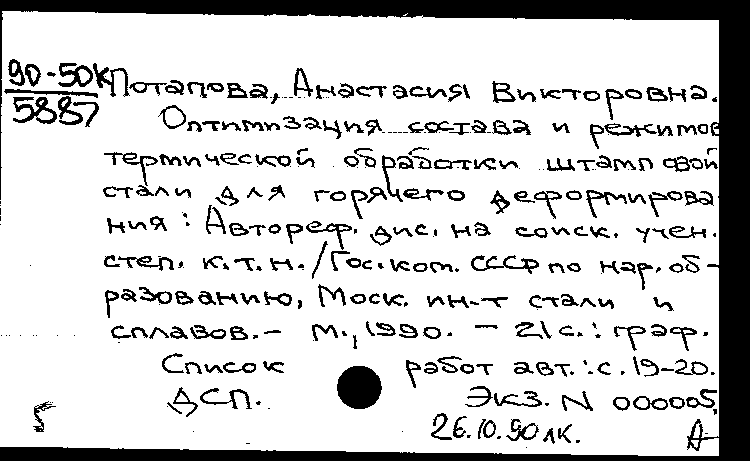 90-50К
5887
Потапова, Анастасия Викторовна.
Оптимизация состава и режимов
термической обработки штамповой
стали для горячего деформирова
ния : Автореф. дис. на соиск. учен.
степ. к.т.н. / Гос. ком. СССР по нар. об-
разованию, Моск. ин-т стали и
сплавов. - М., 1990. - 21 с. : граф.
Список работ авт. : с. 19-20.
ДСП. Экз. N 000005.
5 26.10.90 лк. А